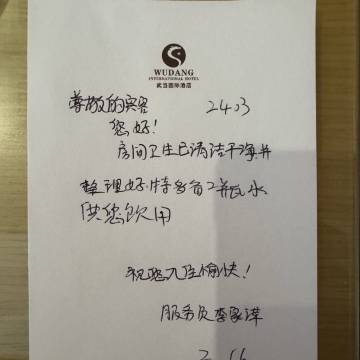 WUDANG
INTERNATIONAL HOTEL
武当国际酒店
尊敬的宾客 2403
您好!
房间卫生已清洁干净并
整理好.特多备二瓶水
供您饮用
祝您入住愉快!
服务员李家洋